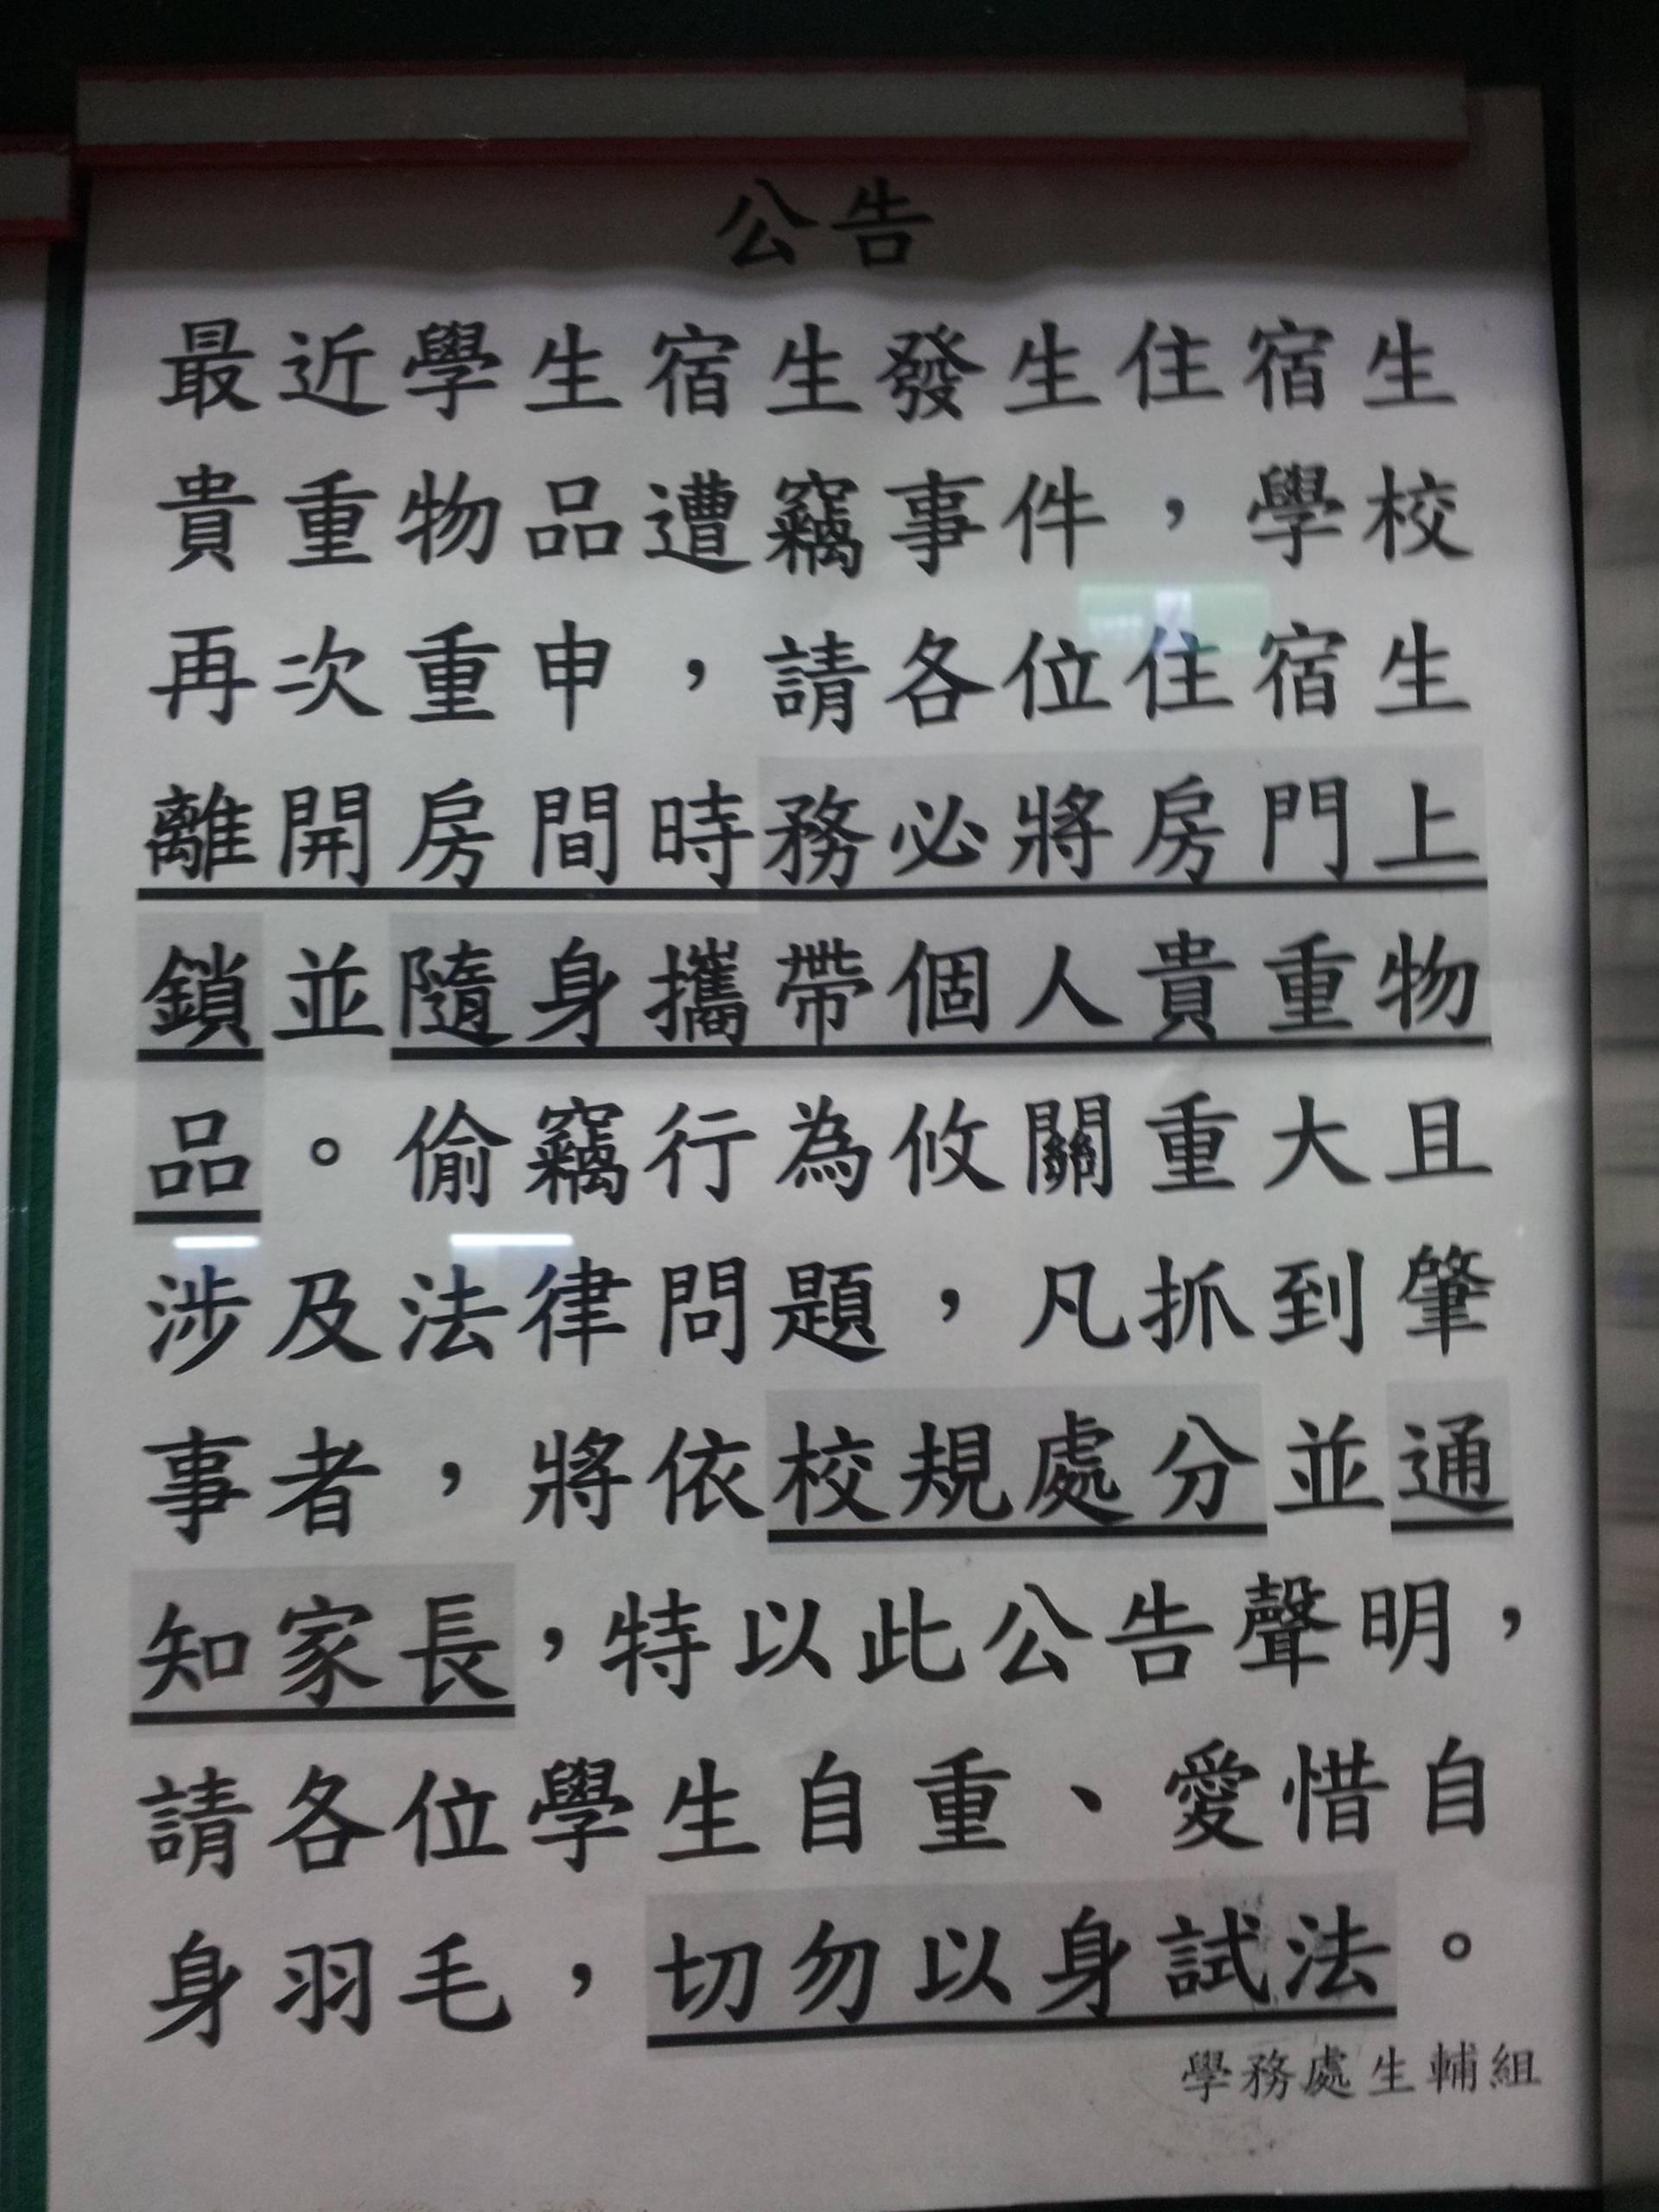 公告
最近學生宿生發生住宿生
貴重物品遭竊事件，學校
再次重申，請各位住宿生
離開房間時務必將房門上
鎖並隨身攜帶個人貴重物
品。偷竊行為攸關重大且
涉及法律問題，凡抓到肇
事者，將依校規處分並通
知家長，特以此公告聲明，
請各位學生自重、愛惜自
身羽毛，切勿以身試法。
學務處生輔組